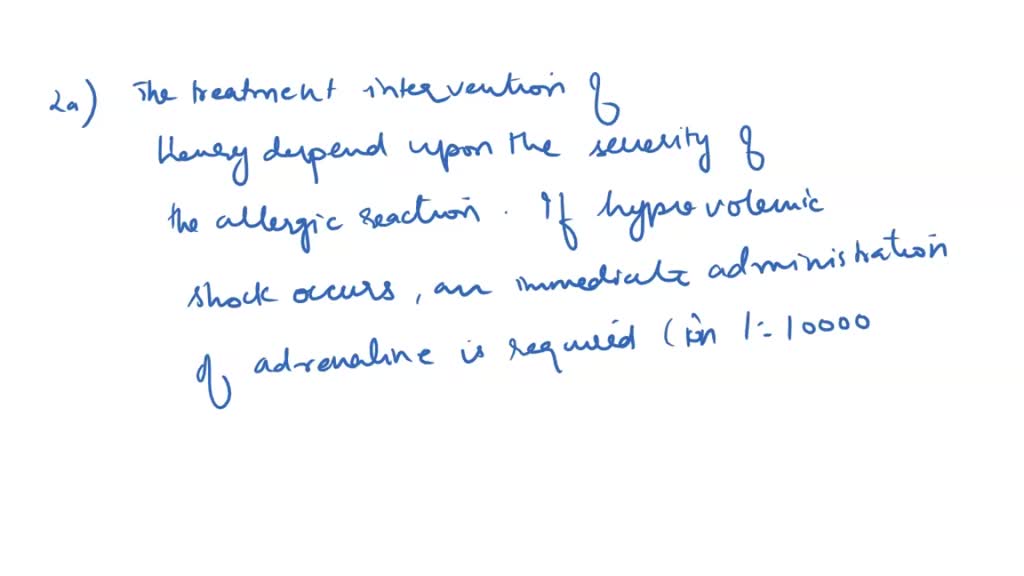 2a) The treatment intervention of
Henry depend upon the severity of
the allergic reaction. If hyprovolemic
shock occurs, an immediate administration
of adrenaline is required (in 1:10000